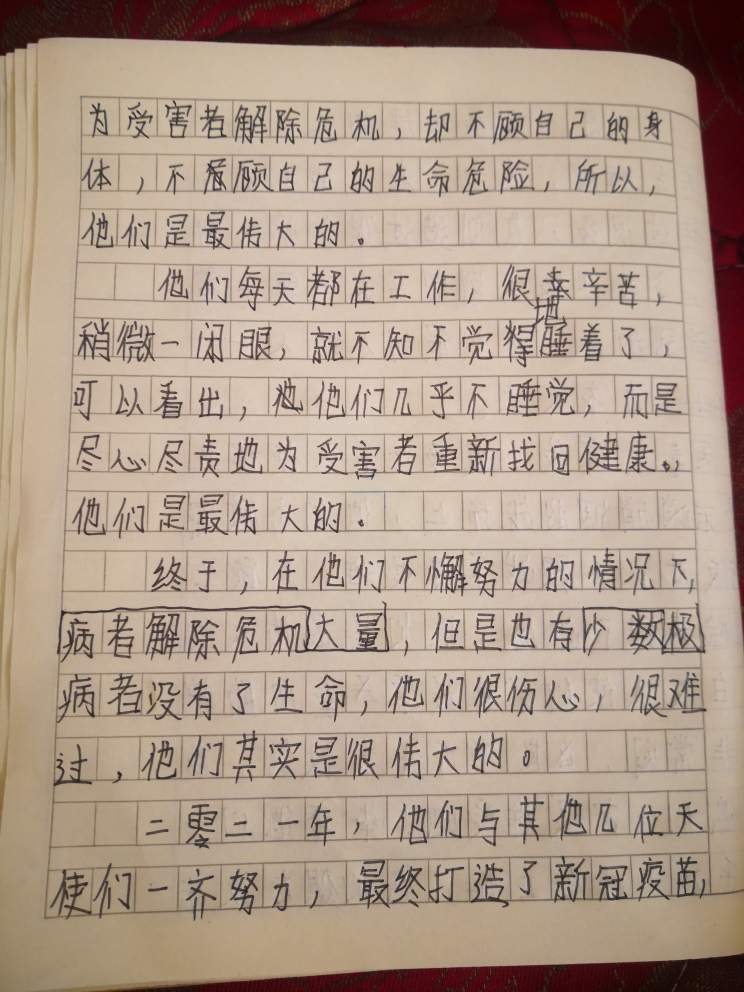 为受害者解除危机，却不顾自己的身
体，不顾自己的生命危险，所以，
他们是最伟大的。
他们每天都在工作，很辛苦，
稍微一闭眼，就不知不觉地睡着了，
可以看出，他们几乎不睡觉，而是
尽心尽责地为受害者重新找回健康。，
他们是最伟大的。
终于，在他们不懈努力的情况下，
病者解除危机大量，但是也有少数极
病者没有了生命，他们很伤心，很难
过，他们其实是很伟大的。
二零二一年，他们与其他几位天
使们一齐努力，最终打造了新冠疫苗，